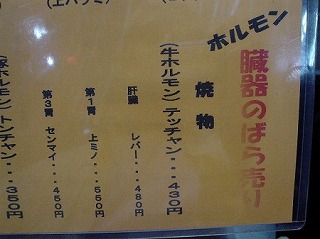 ホルモン
臓器のばら売り
焼物
(牛ホルモン)テッチャン・・・430円
肝臓 レバー・・・480円
第1胃 上ミノ・・・550円
第3胃 センマイ・・・450円
ホルモン)トンチャン・・・350円